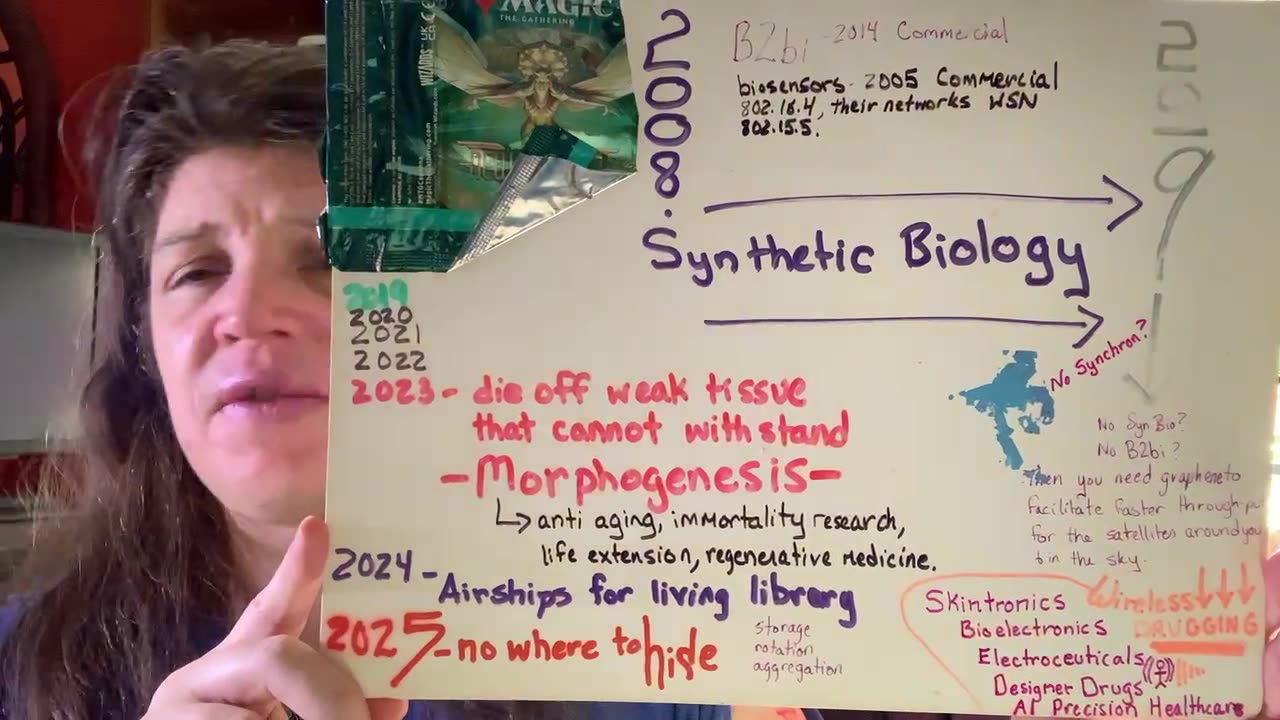 MAGIC
THE GATHERING
WIZARDS
2008.
B2bi - 2014 Commercial
biosensors - 2005 Commercial
802.16.4, their networks WSN
802.15.5.
2019
Synthetic Biology
2019
2020
2021
2022
2023 - die off weak tissue
that cannot withstand
- Morphogenesis -
↳ anti aging, immortality research,
life extension, regenerative medicine.
2024 - Airships for living library
2025 - no where to hide
storage
notation
aggregation
No Synchron?
No Syn Bio?
No B2bi?
Then you need graphene to
facilitate faster through
for the satellites around you
in the sky.
Wireless
DRUGGING
Skintronics
Bioelectronics
Electroceuticals
Designer Drugs
AI Precision Healthcare